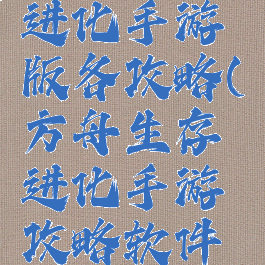 进化手游
版各攻略(
方舟生存
进化手游
攻略软件